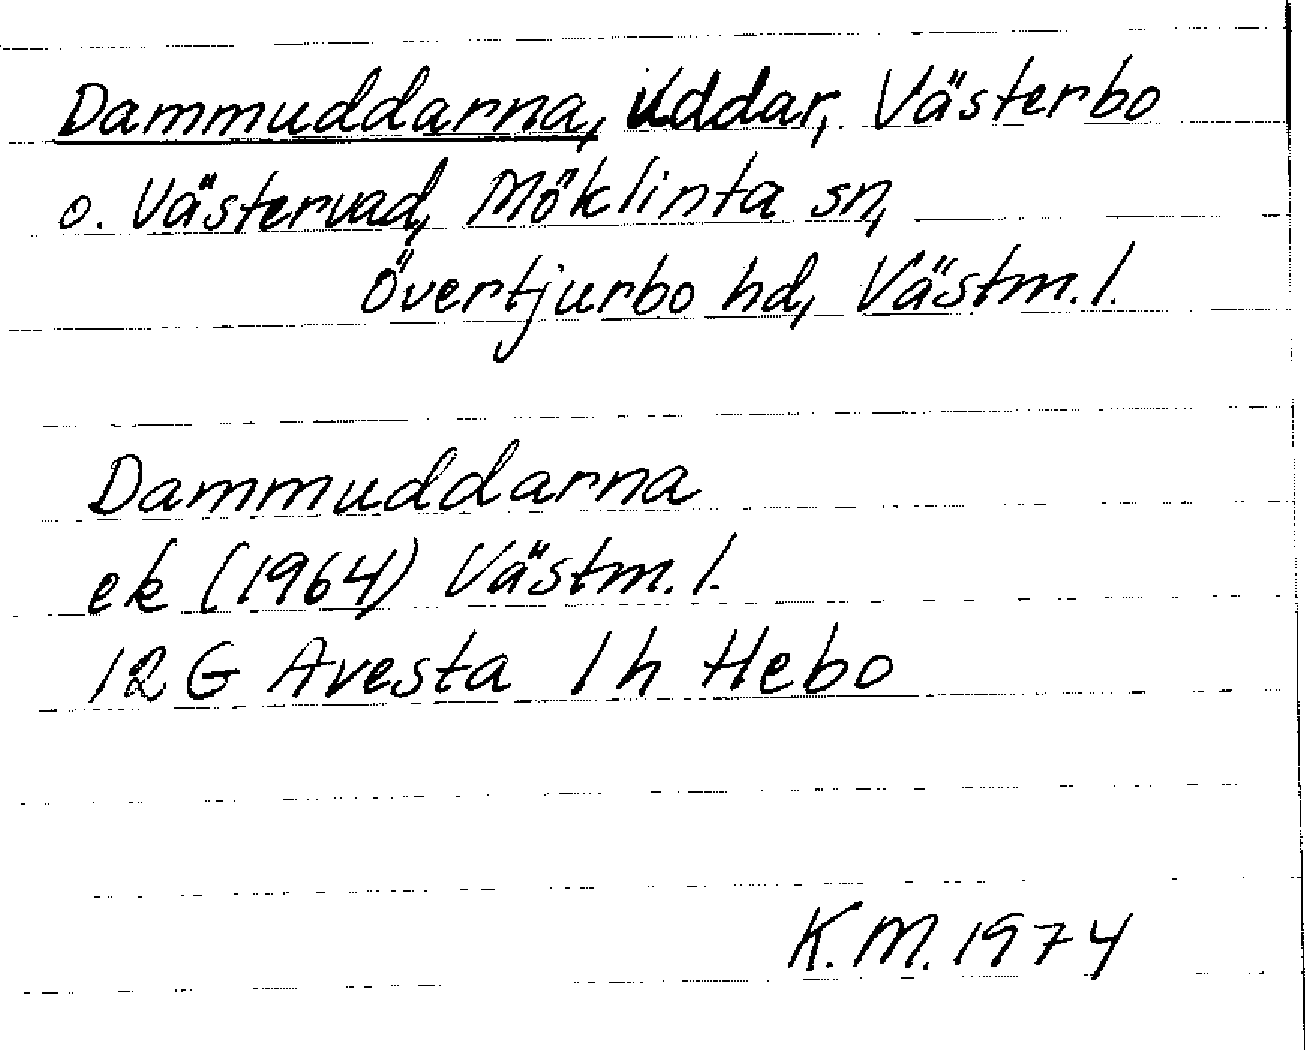 Dammuddarna, uddar, Västerbo
o. Västervad, Möklinta sn,
Övertjurbo hd, Västm. l.
Dammuddarna
ek (1964) Västm. l.
12 G Avesta 1 h Hebo
K. M. 1974